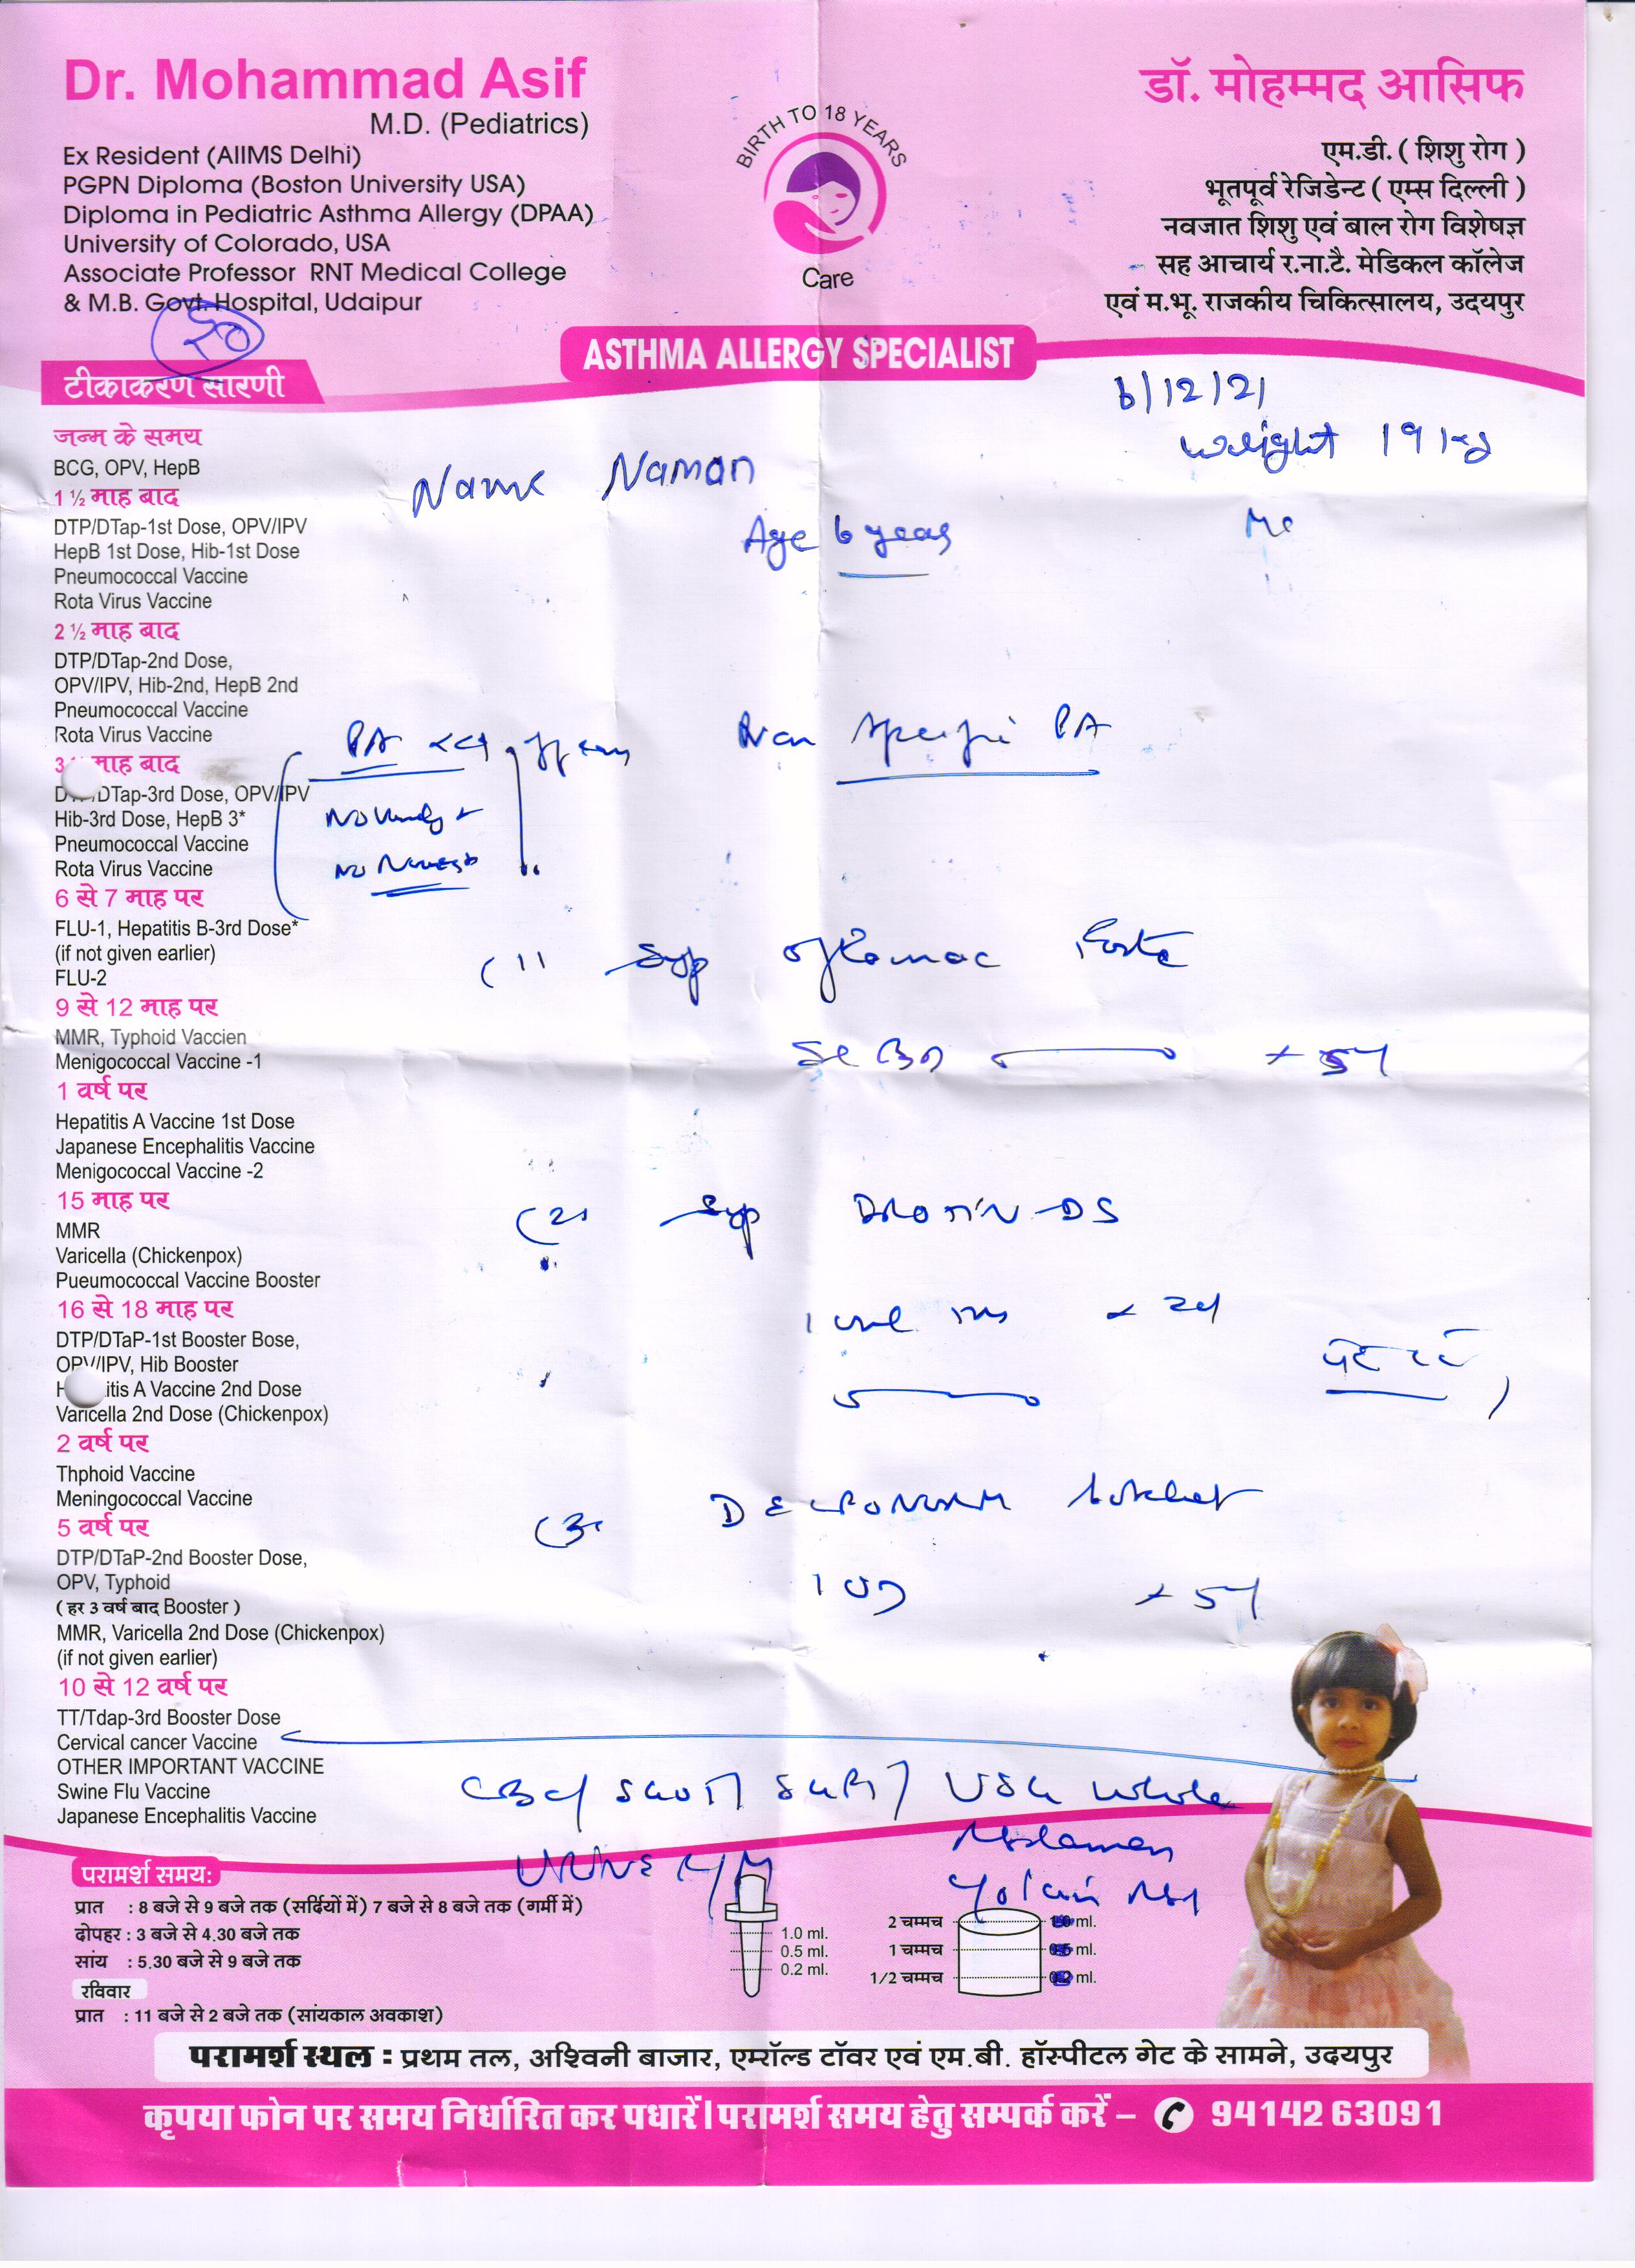 Dr. Mohammad Asif
M.D. (Pediatrics)
Ex Resident (AIIMS Delhi)
PGPN Diploma (Boston University USA)
Diploma in Pediatric Asthma Allergy (DPAA)
University of Colorado, USA
Associate Professor RNT Medical College
& M.B. Govt. Hospital, Udaipur
BIRTH TO 18 YEARS
Care
डॉ. मोहम्मद आसिफ
एम.डी. ( शिशु रोग )
भूतपूर्व रेजिडेन्ट ( एम्स दिल्ली )
नवजात शिशु एवं बाल रोग विशेषज्ञ
सह आचार्य र.ना.टै. मेडिकल कॉलेज
एवं म.भू. राजकीय चिकित्सालय, उदयपुर
ASTHMA ALLERGY SPECIALIST
6/12/21
Weight 19 kg
Name Naman
Age 6 years
Non specific PA
(1) Syp Oflomac Forte
5ml BD × 5d
(2) Syp DROTIN-DS
× 2d
पेट दर्द
(3)
1 OD × 5d
CBC/ SGOT/ SGPT/ USG Whole
Abdomen
URINE R/M
टीकाकरण सारणी
जन्म के समय
BCG, OPV, HepB
1 ½ माह बाद
DTP/DTap-1st Dose, OPV/IPV
HepB 1st Dose, Hib-1st Dose
Pneumococcal Vaccine
Rota Virus Vaccine
2 ½ माह बाद
DTP/DTap-2nd Dose,
OPV/IPV, Hib-2nd, HepB 2nd
Pneumococcal Vaccine
Rota Virus Vaccine
3 माह बाद
DTap-3rd Dose, OPV/IPV
Hib-3rd Dose, HepB 3*
Pneumococcal Vaccine
Rota Virus Vaccine
6 से 7 माह पर
FLU-1, Hepatitis B-3rd Dose*
(if not given earlier)
FLU-2
9 से 12 माह पर
MMR, Typhoid Vaccien
Menigococcal Vaccine -1
1 वर्ष पर
Hepatitis A Vaccine 1st Dose
Japanese Encephalitis Vaccine
Menigococcal Vaccine -2
15 माह पर
MMR
Varicella (Chickenpox)
Pueumococcal Vaccine Booster
16 से 18 माह पर
DTP/DTaP-1st Booster Bose,
OPV/IPV, Hib Booster
A Vaccine 2nd Dose
Varicella 2nd Dose (Chickenpox)
2 वर्ष पर
Thphoid Vaccine
Meningococcal Vaccine
5 वर्ष पर
DTP/DTaP-2nd Booster Dose,
OPV, Typhoid
( हर 3 वर्ष बाद Booster )
MMR, Varicella 2nd Dose (Chickenpox)
(if not given earlier)
10 से 12 वर्ष पर
TT/Tdap-3rd Booster Dose
Cervical cancer Vaccine
OTHER IMPORTANT VACCINE
Swine Flu Vaccine
Japanese Encephalitis Vaccine
परामर्श समय:
प्रात : 8 बजे से 9 बजे तक (सर्दियों में) 7 बजे से 8 बजे तक (गर्मी में)
दोपहर : 3 बजे से 4.30 बजे तक
सांय : 5.30 बजे से 9 बजे तक
रविवार
प्रात : 11 बजे से 2 बजे तक (सांयकाल अवकाश)
1.0 ml.
0.5 ml.
0.2 ml.
2 चम्मच ml.
1 चम्मच ml.
1/2 चम्मच ml.
परामर्श स्थल : प्रथम तल, अश्विनी बाजार, एम्रॉल्ड टॉवर एवं एम.बी. हॉस्पीटल गेट के सामने, उदयपुर
कृपया फोन पर समय निर्धारित कर पधारें। परामर्श समय हेतु सम्पर्क करें – 94142 63091